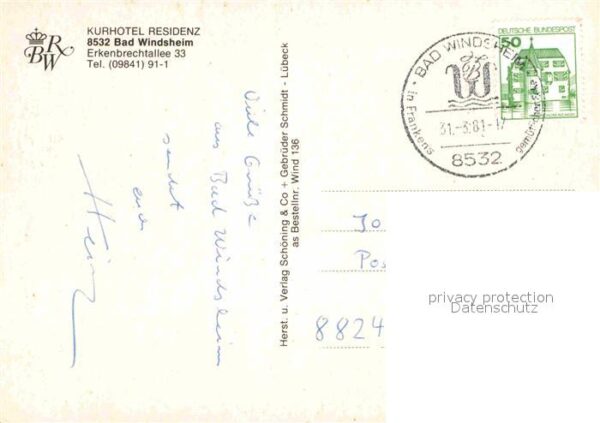 RBW
KURHOTEL RESIDENZ
8532 Bad Windsheim
Erkenbrechtallee 33
Tel. (09841) 91-1
Viele Grüße
aus Bad Windsheim
sendet
euch
Heinz
Herst. u. Verlag Schöning & Co + Gebrüder Schmidt - Lübeck
as Bestellnr. Wind 136
· BAD WINDSHEIM ·
in Frankens
31.-3.81-17
8532
50
DEUTSCHE BUNDESPOST
Jo
Pos
8824
privacy protection
Datenschutz